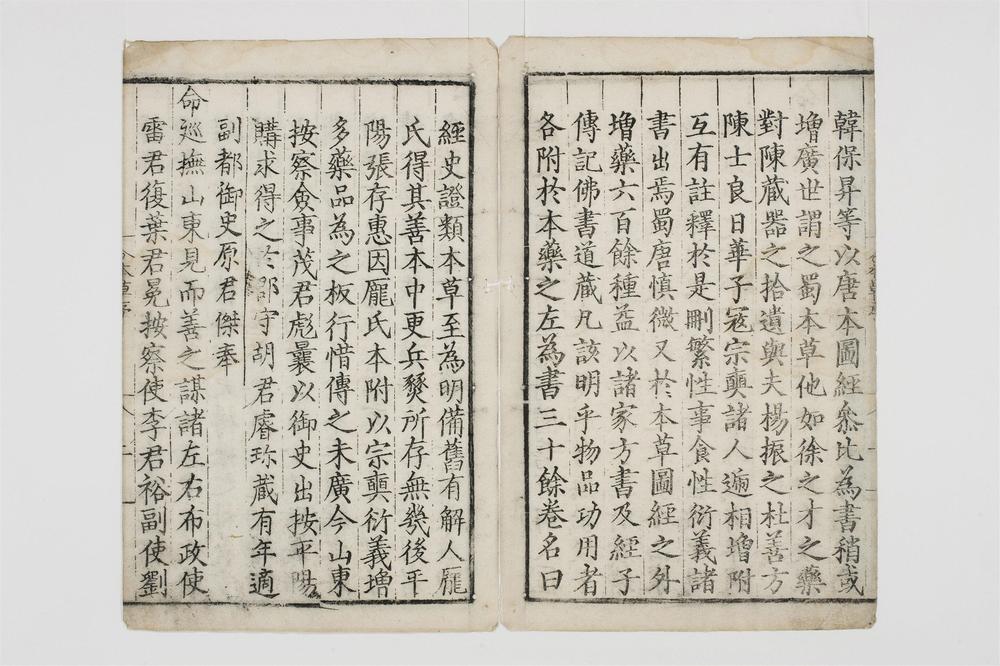 韓保昇等以唐本圖經叅比為書稍或
增廣世謂之蜀本草他如徐之才之藥
對陳藏器之拾遺與夫楊振之杜善方
陳士良日華子寇宗奭諸人遞相增附
互有註釋於是刪繁性事食性衍義諸
書出焉蜀唐慎微又於本草圖經之外
增藥六百餘種益以諸家方書及經子
傳記佛書道藏凡該明乎物品功用者
各附於本藥之左為書三十餘卷名曰
經史證類本草至為明備舊有解人龐
氏得其善本中更兵燹所存無幾後平
陽張存惠因龐氏本附以宗奭衍義增
多藥品為之板行惜傳之未廣今山東
按察僉事茂君彪曩以御史出按平陽
購求得之於郡守胡君睿珎藏有年適
副都御史原君傑奉
命巡撫山東見而善之謀諸左右布政使
雷君復葉君冕按察使李君裕副使劉